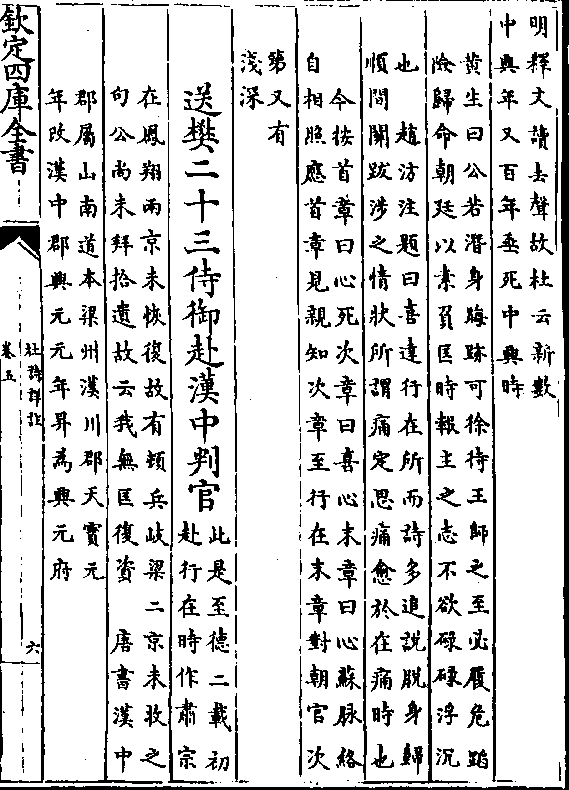 明釋文讀去聲故杜云新數
中興年又百年垂死中興時
黄生曰公若潛身晦跡可徐待王師之至必履危蹈
險歸命朝廷以素負匡時報主之志不欲碌碌浮沉
也　趙汸注題曰喜達行在所而詩多追說脱身歸
順間關跋涉之情狀所謂痛定思痛愈於在痛時也
今按首章曰心死次章曰喜心末章曰心蘇脉絡
自相照應首章見親知次章至行在末章對朝官次
第又有
淺深
送樊二十三侍御赴漢中判官
此是至德二載初
赴行在時作肅宗
在鳳翔兩京未恢復故有頼兵岐梁二京未收之
句公尚未拜拾遺故云我無匡復資　唐書漢中
郡屬山南道本梁州漢川郡天寳元
年改漢中郡興元元年昇為興元府
欽定四庫全書
杜詩詳註
卷五
六